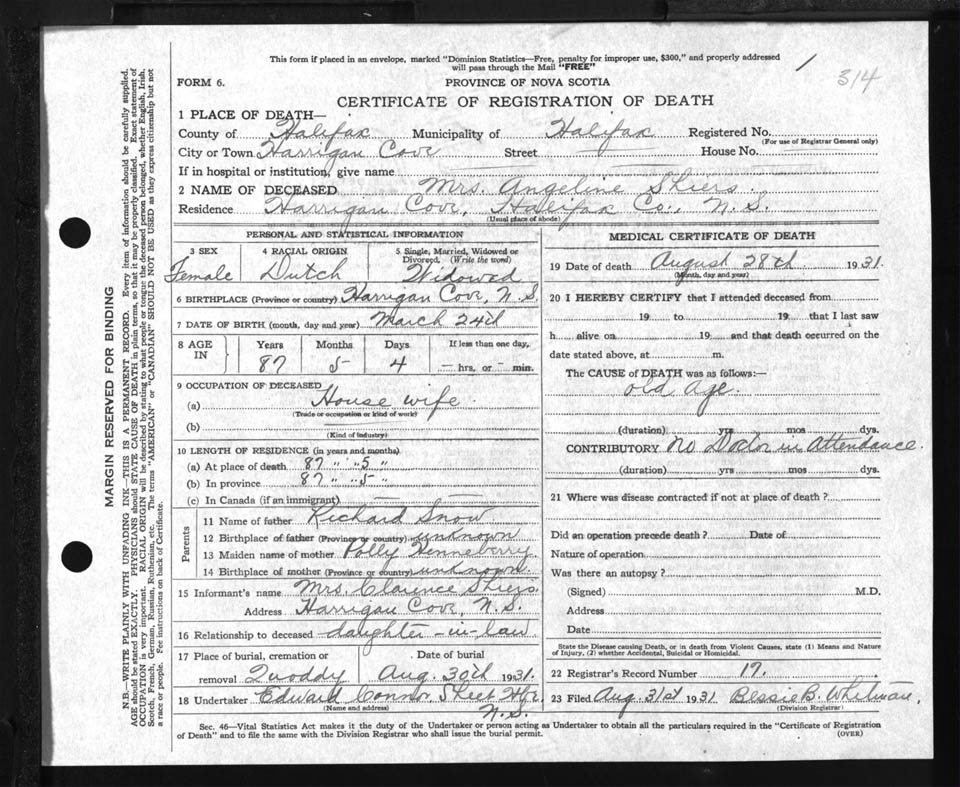 This form if placed in an envelope, marked "Dominion Statistics—Free, penalty for improper use, $300," and properly addressed
will pass through the Mail "FREE"
1
314
FORM 6.
PROVINCE OF NOVA SCOTIA
CERTIFICATE OF REGISTRATION OF DEATH
1 PLACE OF DEATH—
County of Halifax Municipality of Halifax Registered No.
(For use of Registrar General only)
City or Town Harrigan Cove Street House No.
If in hospital or institution, give name
2 NAME OF DECEASED Mrs. Angeline Shiers.
Residence Harrigan Cove, Halifax Co., N.S.
(Usual place of abode)
PERSONAL AND STATISTICAL INFORMATION
3 SEX 4 RACIAL ORIGIN 5 Single, Married, Widowed or
Divorced, (Write the word)
Female Dutch Widowed
6 BIRTHPLACE (Province or country) Harrigan Cove, N.S.
7 DATE OF BIRTH (month, day and year) March 24th
8 AGE IN Years Months Days If less than one day,
87 5 4 — hrs. or — min.
9 OCCUPATION OF DECEASED
(a) House wife.
(Trade or occupation or kind of work)
(b)
(Kind of industry)
10 LENGTH OF RESIDENCE (in years and months)
(a) At place of death 87 " " 5 "
(b) In province 87 " " 5 "
(c) In Canada (if an immigrant) — —
Parents
11 Name of father Richard Snow
12 Birthplace of father (Province or country) unknown
13 Maiden name of mother Polly Henneberry
14 Birthplace of mother (Province or country) unknown.
15 Informant's name Mrs. Clarence Shiers.
Address Harrigan Cove, N.S.
16 Relationship to deceased daughter-in-law
17 Place of burial, cremation or Date of burial
removal Quoddy Aug. 30th 1931.
18 Undertaker Edward Connor, Sheet Hbr.
(Name and address) N.S.
MEDICAL CERTIFICATE OF DEATH
19 Date of death August 28th 1931.
(Month, day and year)
20 I HEREBY CERTIFY that I attended deceased from
19 to 19 that I last saw
h alive on 19 and that death occurred on the
date stated above, at m.
The CAUSE of DEATH was as follows:—
old age.
(duration) yrs mos dys.
CONTRIBUTORY No Doctor in Attendance.
(duration) yrs mos dys.
21 Where was disease contracted if not at place of death?
Did an operation precede death? Date of
Nature of operation
Was there an autopsy?
(Signed) M.D.
Address
Date
State the Disease causing Death, or in death from Violent Causes, state (1) Means and Nature
of Injury, (2) whether Accidental, Suicidal or Homicidal.
22 Registrar's Record Number 17.
23 Filed Aug. 31st 1931 Bessie B. Whitman.
(Division Registrar)
Sec. 46—Vital Statistics Act makes it the duty of the Undertaker or person acting as Undertaker to obtain all the particulars required in the "Certificate of Registration
of Death" and to file the same with the Division Registrar who shall issue the burial permit.
(OVER)
MARGIN RESERVED FOR BINDING
N.B.—WRITE PLAINLY WITH UNFADING INK—THIS IS A PERMANENT RECORD. Every item of information should be carefully supplied.
AGE should be stated EXACTLY. PHYSICIANS should STATE CAUSE OF DEATH in plain terms, so that it may be properly classified. Exact statement of
OCCUPATION is very important. RACIAL ORIGIN will be described by stating to what people or tongue the deceased person belonged, whether English, Irish,
Scotch, French, German, Russian, Ruthenian, etc. The terms "AMERICAN" or "CANADIAN" SHOULD NOT BE USED as they express citizenship but not
a race or people. See instructions on back of Certificate.